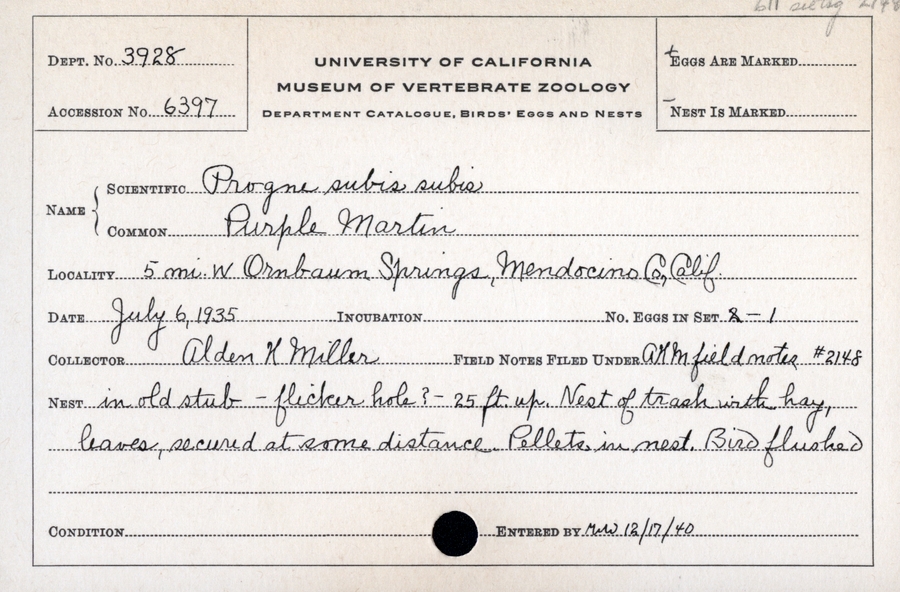 Dept. No. 3928
Accession No. 6397
UNIVERSITY OF CALIFORNIA
MUSEUM OF VERTEBRATE ZOOLOGY
Department Catalogue, Birds' Eggs and Nests
+ Eggs Are Marked
- Nest Is Marked
Name { Scientific Progne subis subis
Common Purple Martin
Locality 5 mi. W Ornbaum Springs, Mendocino Co, Calif.
Date July 6, 1935 Incubation No. Eggs in Set - 1
Collector Alden H Miller Field Notes Filed Under AHM field notes #2148
Nest in old stub - flicker hole? - 25 ft up. Nest of trash with hay,
leaves, secured at some distance. Pellets in nest. Bird flushed
Condition Entered by 12/17/40